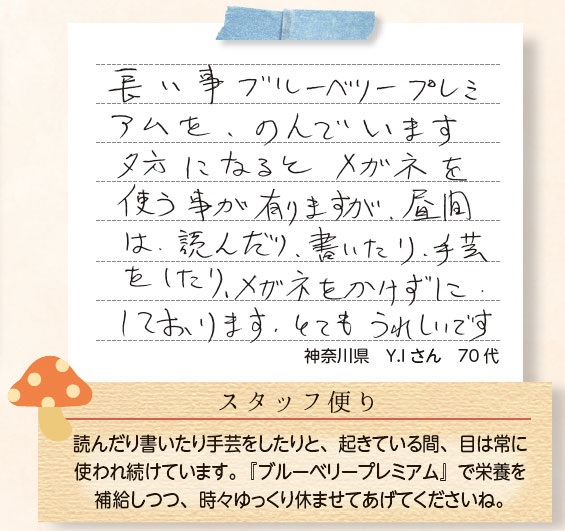 長い事ブルーベリープレミ
アムを、のんでいます
夕方になると メガネを
使う事が有りますが、昼間
は、読んだり、書いたり、手芸
をしたり、メガネをかけずに、
しております、とてもうれしいです
神奈川県 Y.Iさん 70代
スタッフ便り
読んだり書いたり手芸をしたりと、起きている間、目は常に
使われ続けています。『ブルーベリープレミアム』で栄養を
補給しつつ、時々ゆっくり休ませてあげてくださいね。